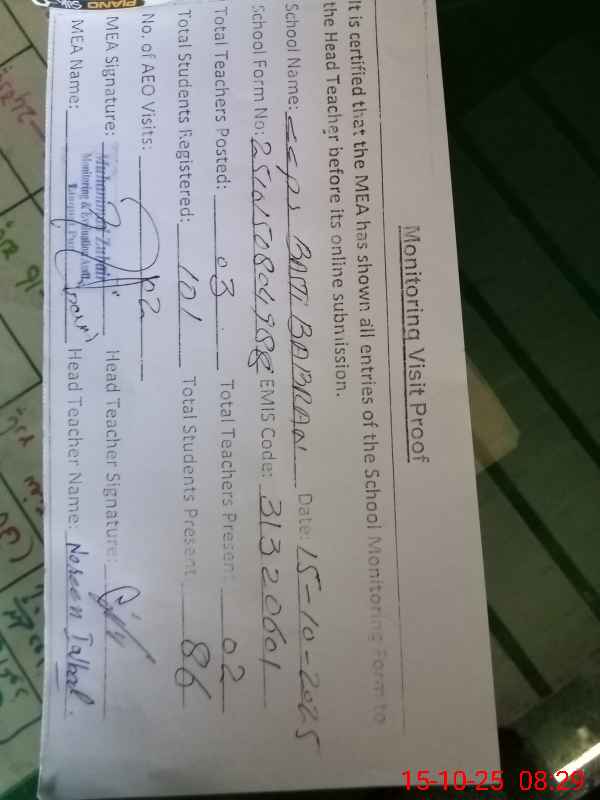 Monitoring Visit Proof
It is certified that the MEA has shown all entries of the School Monitoring Form to
the Head Teacher before its online submission.
School Name: GGPS BASTI BABRAN Date: 15-10-2025
School Form No: EMIS Code: 31320601
Total Teachers Posted: 03 Total Teachers Present 02
Total Students Registered: 101 Total Students Present 86
No. of AEO Visits: 02
MEA Signature: Head Teacher Signature:
Muhammad Zubair
Monitoring & Evaluation
MEA Name: Head Teacher Name: Noreen Iqbal
PIANO
15-10-25 08:29